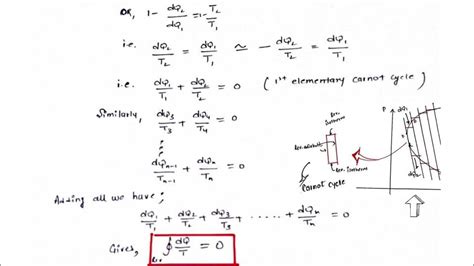 or, 1 - dQ₂/dQ₁ = 1 - T₂/T₁
i.e. dQ₂/T₂ = dQ₁/T₁ ≃ - dQ₂/T₂ = dQ₁/T₁
i.e. dQ₁/T₁ + dQ₂/T₂ = 0 (1st elementary carnot cycle)
Similarly, dQ₃/T₃ + dQ₄/T₄ = 0
dQₙ₋₁/Tₙ₋₁ + dQₙ/Tₙ = 0
Adding all we have;
dQ₁/T₁ + dQ₂/T₂ + dQ₃/T₃ + ...... + dQₙ/Tₙ = 0
Gives, ∮ dQ/T = 0
P
dQ₁
Rev. isotherm
Rev. adiabatic
Rev. isotherm
Carnot cycle